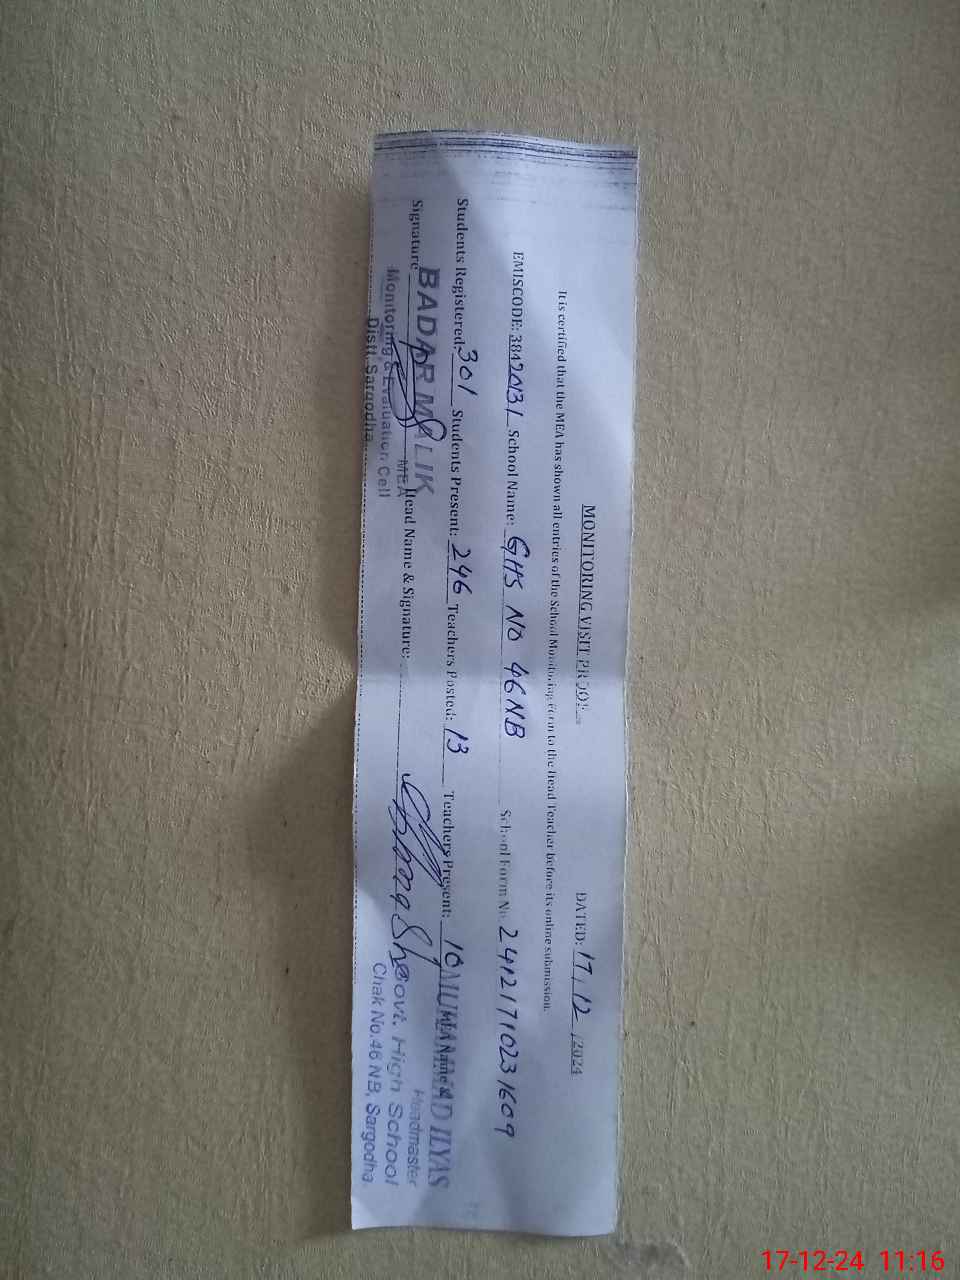 MONITORING VISIT PROOF
DATED: 17/12/2024
It is certified that the MEA has shown all entries of the School Monitoring Form to the Head Teacher before its online submission.
EMISCODE: 38420131 School Name: GHS NO 46NB School Form No. 24121710231609
Students Registered: 301 Students Present: 246 Teachers Posted: 13 Teachers Present: 10 MEA Name &
Signature Head Name & Signature:
BADAR MALIK
MEA
Monitoring & Evaluation Cell
Distt. Sargodha.
MUHAMMAD ILYAS
Headmaster
Govt. High School
Chak No.46 NB, Sargodha.
17-12-24 11:16